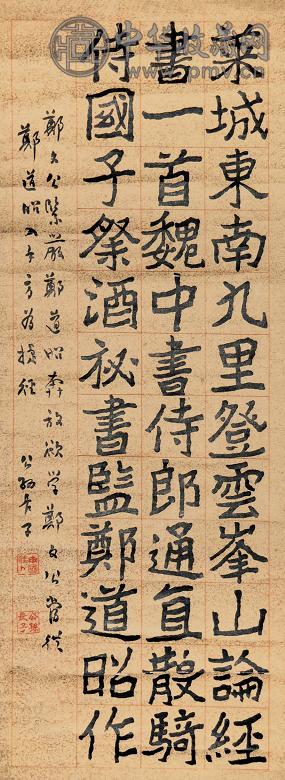 萊城東南九里登雲峯山論經
書一首魏中書侍郎通直散騎
侍國子祭酒祕書監鄭道昭作
鄭文公緊嚴鄭道昭奔放欲學鄭文公當從
鄭道昭入手方為捷徑
公孫長子
中华收藏网
www.pmv.cn